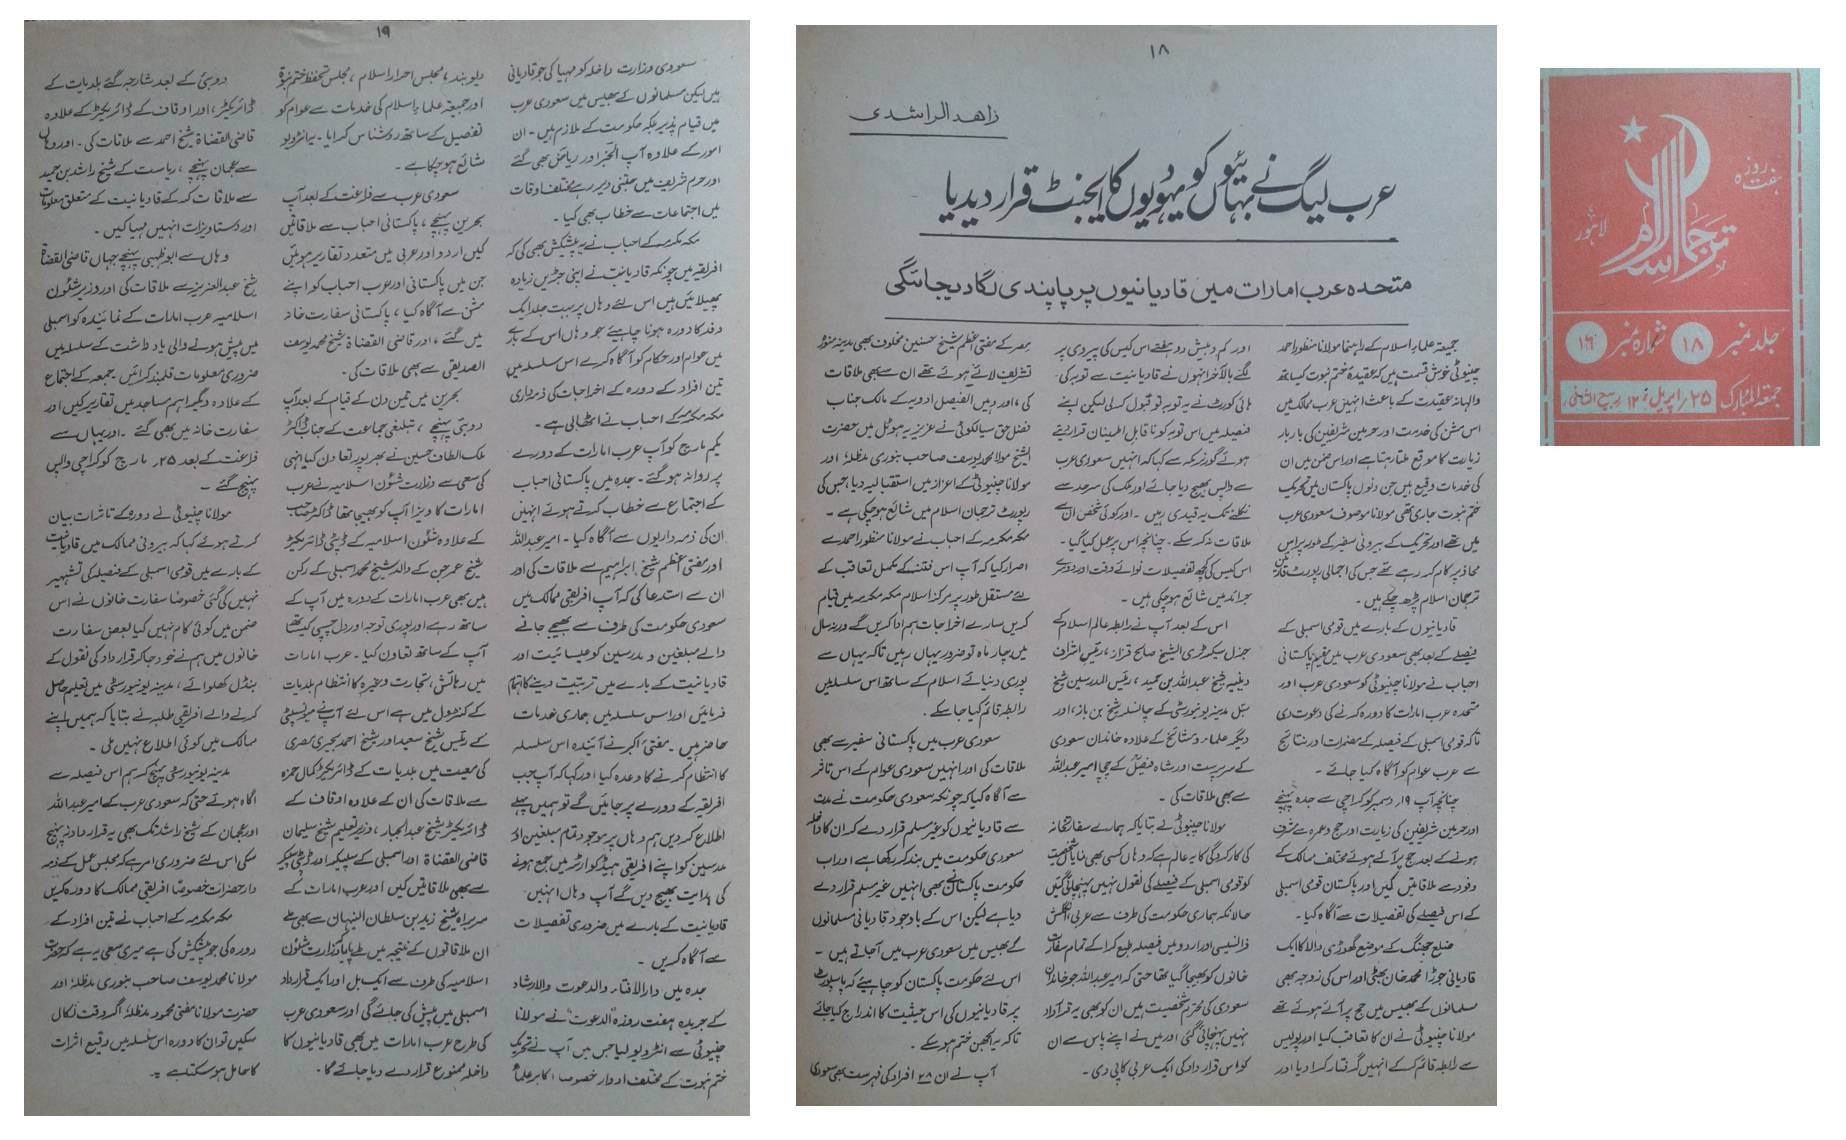 ۱۸
زاهد الراشدی
عرب لیگ نے بہائیوں کو یہودیوں کا ایجنٹ قرار دیدیا
متحدہ عرب امارات میں قادیانیوں پر پابندی لگا دی جائیگی
جمعیۃ علماء اسلام کے راہنما مولانا منظور احمد
چنیوٹی خوش قسمت ہیں کہ عقیدۂ ختم نبوت کیساتھ
والہانہ عقیدت کے باعث انہیں عرب ممالک میں
اس مشن کی خدمت اور حرمین شریفین کی بار بار
زیارت کا موقع ملتا رہتا ہے اور اس ضمن میں ان
کی خدمات وقیع ہیں جن دنوں پاکستان میں تحریک
ختم نبوت جاری تھی مولانا موصوف سعودی عرب
میں تھے اور تحریک کے بیرونی سفیر کے طور پر اس
محاذ پر کام کر رہے تھے جس کی اجمالی رپورٹ قارئین
ترجمان اسلام پڑھ چکے ہیں ۔
قادیانیوں کے بارے میں قومی اسمبلی کے
فیصلے کے بعد بھی سعودی عرب میں مقیم پاکستانی
احباب نے مولانا چنیوٹی کو سعودی عرب اور
متحدہ عرب امارات کا دورہ کرنے کی دعوت دی
تاکہ قومی اسمبلی کے فیصلہ کے مضمرات اور نتائج
سے عرب عوام کو آگاہ کیا جائے ۔
چنانچہ آپ ۱۹ دسمبر کو کراچی سے جدہ پہنچے
اور حرمین شریفین کی زیارت اور حج و عمرہ سے مشرف
ہونے کے بعد حج پر آئے ہوئے مختلف ممالک کے
وفود سے ملاقاتیں کیں اور پاکستان قومی اسمبلی
کے اس فیصلے کی تفصیلات سے آگاہ کیا۔
ضلع جھنگ کے موضع گھوڑی والا کا ایک
قادیانی جوڑا محمد خان بھٹی اور اس کی زوجہ بھی
مسلمانوں کے بھیس میں حج پر آئے ہوئے تھے
مولانا چنیوٹی نے ان کا تعاقب کیا اور پولیس
سے رابطہ قائم کر کے انہیں گرفتار کرا دیا اور
اور کم و بیش دو ہفتے اس کیس کی پیروی پر
لگے بالآخر انہوں نے قادیانیت سے توبہ کی۔
ہائی کورٹ نے یہ توبہ تو قبول کر لی لیکن اپنے
فیصلہ میں اس توبہ کو ناقابل اطمینان قرار دیتے
ہوئے گورنر مکہ سے کہا کہ انہیں سعودی عرب
سے واپس بھیج دیا جائے اور ملک کی سرحد سے
نکلنے تک یہ قیدی رہیں ۔ اور کوئی شخص ان سے
ملاقات نہ کر سکے ۔ چنانچہ اس پر عمل کیا گیا ۔
اس کیس کی کچھ تفصیلات نوائے وقت اور دوسرے
جرائد میں شائع ہو چکی ہیں ۔
اس کے بعد آپ نے رابطہ عالم اسلام کے
جنرل سیکرٹری الشیخ صالح قزاز ، رئیس اشراف
دینیہ شیخ عبداللہ بن حمید ، رئیس المدرسین شیخ
سبل مدینہ یونیورسٹی کے چانسلر شیخ بن باز ، اور
دیگر علماء و مشائخ کے علاوہ خاندان سعودی
کے سرپرست اور شاہ فیصل کے چچا امیر عبداللہ
سے بھی ملاقات کی ۔
مولانا چنیوٹی نے بتایا کہ ہمارے سفارتخانہ
کی کارکردگی کا یہ عالم ہے کہ وہاں کسی بھی نمایاں شخصیت
کو قومی اسمبلی کے فیصلے کی نقول نہیں پہنچائی گئیں
حالانکہ ہماری حکومت کی طرف سے عربی انگلش
فرانسیسی اور اردو میں فیصلہ طبع کرا کے تمام سفارت
خانوں کو بھیجا گیا تھا حتی کہ امیر عبداللہ جو خاندان
سعودی کی محترم شخصیت ہیں ان کو بھی یہ قرار داد
نہیں پہنچائی گئی اور میں نے اپنے پاس سے ان
کو اس قرار داد کی ایک عربی کاپی دی ۔
مصر کے مفتی اعظم شیخ حسنین مخلوف بھی مدینہ منورہ
تشریف لائے ہوئے تھے ان سے بھی ملاقات
کی ، اور وہیں الفیصل ادویہ کے مالک جناب
فضل حق سیالکوٹی نے عزیزیہ ہوٹل میں حضرت
الشیخ مولانا محمد یوسف صاحب بنوری مدظلہ اور
مولانا چنیوٹی کے اعزاز میں استقبالیہ دیا جس کی
رپورٹ ترجمان اسلام میں شائع ہو چکی ہے ۔
مکہ مکرمہ کے احباب نے مولانا منظور احمد سے
اصرار کیا کہ آپ اس فتنہ کے مکمل تعاقب کے
لئے مستقل طور پر مرکز اسلام مکہ مکرمہ میں قیام
کریں سارے اخراجات ہم ادا کریں گے ورنہ سال
میں چار ماہ تو ضرور یہاں رہیں تاکہ یہاں سے
پوری دنیائے اسلام کے ساتھ اس سلسلہ میں
رابطہ قائم کیا جا سکے ۔
سعودی عرب میں پاکستانی سفیر سے بھی
ملاقات کی اور انہیں سعودی عوام کے اس تاثر
سے آگاہ کیا کہ چونکہ سعودی حکومت نے مدت
سے قادیانیوں کو غیر مسلم قرار دے کر ان کا داخلہ
سعودی حکومت میں بند کر رکھا ہے اور اب
حکومت پاکستان نے بھی انہیں غیر مسلم قرار دے
دیا ہے لیکن اس کے باوجود قادیانی مسلمانوں
کے بھیس میں سعودی عرب میں آ جاتے ہیں ۔
اس لئے حکومت پاکستان کو چاہیئے کہ پاسپورٹ
پر قادیانیوں کی اس حیثیت کا اندراج کیا جائے
تاکہ یہ الجھن ختم ہو سکے ۔
آپ نے ان ۲۸ افراد کی فہرست بھی سعودی
۱۹
سعودی وزارت داخلہ کو مہیا کی جو قادیانی
ہیں لیکن مسلمانوں کے بھیس میں سعودی عرب
میں قیام پذیر بلکہ حکومت کے ملازم ہیں ۔ ان
امور کے علاوہ آپ الخبر اور ریاض بھی گئے
اور حرم شریف میں جتنی دیر رہے مختلف اوقات
میں اجتماعات سے خطاب بھی کیا ۔
مکہ مکرمہ کے احباب نے یہ پیشکش بھی کی کہ
افریقہ میں چونکہ قادیانیت نے اپنی جڑیں زیادہ
پھیلائی ہیں اس لئے وہاں پر بہت جلد ایک
وفد کا دورہ ہونا چاہیئے جو وہاں اس کے بارے
میں عوام اور حکام کو آگاہ کرے اس سلسلہ میں
تین افراد کے دورہ کے اخراجات کی ذمہ داری
مکہ مکرمہ کے احباب نے اٹھا لی ہے ۔
یکم مارچ کو آپ عرب امارات کے دورے
پر روانہ ہو گئے ۔ جدہ میں پاکستانی احباب
کے اجتماع سے خطاب کرتے ہوئے انہیں
ان کی ذمہ داریوں سے آگاہ کیا ۔ امیر عبداللہ
اور مفتی اعظم شیخ ابراہیم سے ملاقات کی اور
ان سے استدعا کی کہ آپ افریقی ممالک میں
سعودی حکومت کی طرف سے بھیجے جانے
والے مبلغین و مدرسین کو عیسائیت اور
قادیانیت کے بارے میں تربیت دینے کا اہتمام
فرمائیں اور اس سلسلہ میں ہماری خدمات
حاضر ہیں ۔ مفتی اکبر نے آئندہ اس سلسلہ
کا انتظام کرنے کا وعدہ کیا اور کہا کہ آپ جب
افریقہ کے دورے پر جائیں گے تو ہمیں پہلے
اطلاع کر دیں ہم وہاں پر موجود تمام مبلغین اور
مدرسین کو اپنے افریقی ہیڈ کوارٹر میں جمع ہونے
کی ہدایت بھیج دیں گے آپ وہاں انہیں
قادیانیت کے بارے میں ضروری تفصیلات
سے آگاہ کریں ۔
جدہ میں دارالافتاء والدعوت والارشاد
کے جریدہ ہفت روزہ "الدعوت" نے مولانا
چنیوٹی سے انٹرویو لیا جس میں آپ نے تحریک
ختم نبوت کے مختلف ادوار خصوصاً اکابر علماء
دیوبند ، مجلس احرار اسلام ، مجلس تحفظ ختم نبوۃ
اور جمعیۃ علماء اسلام کی خدمات سے عوام کو
تفصیل کے ساتھ روشناس کرایا ۔ یہ انٹرویو
شائع ہو چکا ہے ۔
سعودی عرب سے فراغت کے بعد آپ
بحرین پہنچے ، پاکستانی احباب سے ملاقاتیں
کیں اردو اور عربی میں متعدد تقاریر ہوئیں
جن میں پاکستانی اور عرب احباب کو اپنے
مشن سے آگاہ کیا ، پاکستانی سفارت خانہ
میں گئے ، اور قاضی القضاۃ شیخ محمد یوسف
الصدیقی سے بھی ملاقات کی ۔
بحرین میں تین دن کے قیام کے بعد آپ
دوبئی پہنچے ، تبلیغی جماعت کے جناب ڈاکٹر
ملک الطاف حسین نے بھرپور تعاون کیا انہی
کی سعی سے وزارت شئون اسلامیہ نے عرب
امارات کا ویزا آپ کو بھیجا تھا ڈاکٹر صاحب
کے علاوہ شئون اسلامیہ کے ڈپٹی ڈائریکٹر
شیخ عمر جن کے والد شیخ محمد اسمبلی کے رکن
ہیں بھی عرب امارات کے دورہ میں آپ کے
ساتھ رہے اور پوری توجہ اور دل چسپی کیساتھ
آپ کے ساتھ تعاون کیا ۔ عرب امارات
میں رہائش ، تجارت وغیرہ کا انتظام بلدیات
کے کنٹرول میں ہے اس لئے آپ نے میونسپلٹی
کے رئیس شیخ سعید اور شیخ احمد بحیری مصری
کی معیت میں بلدیات کے ڈائریکٹر کمال حمزہ
سے ملاقات کی ان کے علاوہ اوقاف کے
ڈائریکٹر شیخ عبدالجبار ، وزیر تعلیم شیخ سلیمان
قاضی القضاۃ اور اسمبلی کے سپیکر اور ڈپٹی سپیکر
سے بھی ملاقاتیں کیں اور عرب امارات کے
سربراہ شیخ زید بن سلطان النہیان سے بھی ملے
ان ملاقاتوں کے نتیجہ میں طے پایا کہ وزارت شئون
اسلامیہ کی طرف سے ایک بل اور ایک قرارداد
اسمبلی میں پیش کی جائے گی اور سعودی عرب
کی طرح عرب امارات میں بھی قادیانیوں کا
داخلہ ممنوع قرار دے دیا جائے گا ۔
دوبئی کے بعد شارجہ گئے بلدیات کے
ڈائریکٹر ، اور اوقاف کے ڈائریکٹر کے علاوہ
قاضی القضاۃ شیخ احمد سے ملاقات کی ۔ اور وہاں
سے عجمان پہنچے ، ریاست کے شیخ راشد بن حمید
سے ملاقات کر کے قادیانیت کے متعلق معلومات
اور دستاویزات انہیں مہیا کیں ۔
وہاں سے ابوظہبی پہنچے جہاں قاضی القضاۃ
شیخ عبدالعزیز سے ملاقات کی اور وزیر شئون
اسلامیہ عرب امارات کے نمائندہ کو اسمبلی
میں پیش ہونے والی یادداشت کے سلسلہ میں
ضروری معلومات قلمبند کرائیں جمعہ کے اجتماع
کے علاوہ دیگر اہم مساجد میں تقاریر کیں اور
سفارت خانہ میں بھی گئے ۔ اور یہاں سے
فراغت کے بعد ۲۵ مارچ کو کراچی واپس
پہنچ گئے ۔
مولانا چنیوٹی نے دورہ کے تاثرات بیان
کرتے ہوئے کہا کہ بیرونی ممالک میں قادیانیت
کے بارے میں قومی اسمبلی کے فیصلہ کی تشہیر
نہیں کی گئی خصوصاً سفارت خانوں نے اس
ضمن میں کوئی کام نہیں کیا بعض سفارت
خانوں میں ہم نے خود جا کر قرارداد کی نقول کے
بنڈل کھلوائے ، مدینہ یونیورسٹی میں تعلیم حاصل
کرنے والے افریقی طلبہ نے بتایا کہ ہمیں اپنے
ممالک میں کوئی اطلاع نہیں ملی ۔
مدینہ یونیورسٹی پہنچ کر ہم اس فیصلہ سے
آگاہ ہوئے حتی کہ سعودی عرب کے امیر عبداللہ
اور عجمان کے شیخ راشد تک بھی یہ قرارداد نہ پہنچ
سکی اس لئے ضروری امر ہے کہ مجلس عمل کے ذمہ
دار حضرات خصوصاً افریقی ممالک کا دورہ کریں
مکہ مکرمہ کے احباب نے تین افراد کے
دورہ کی جو پیشکش کی ہے میری سعی یہ ہے کہ حضرت
مولانا محمد یوسف صاحب بنوری مدظلہ اور
حضرت مولانا مفتی محمود مدظلہ اگر وقت نکال
سکیں تو ان کا دورہ اس سلسلہ میں وقیع اثرات
کا حامل ہو سکتا ہے ۔
ہفت روزہ
ترجمان اسلام
لاہور
جلد نمبر ۱۸ شمارہ نمبر ۱۶
جمعۃ المبارک ۲۵/ اپریل ؛ ۱۲ ربیع الثانی